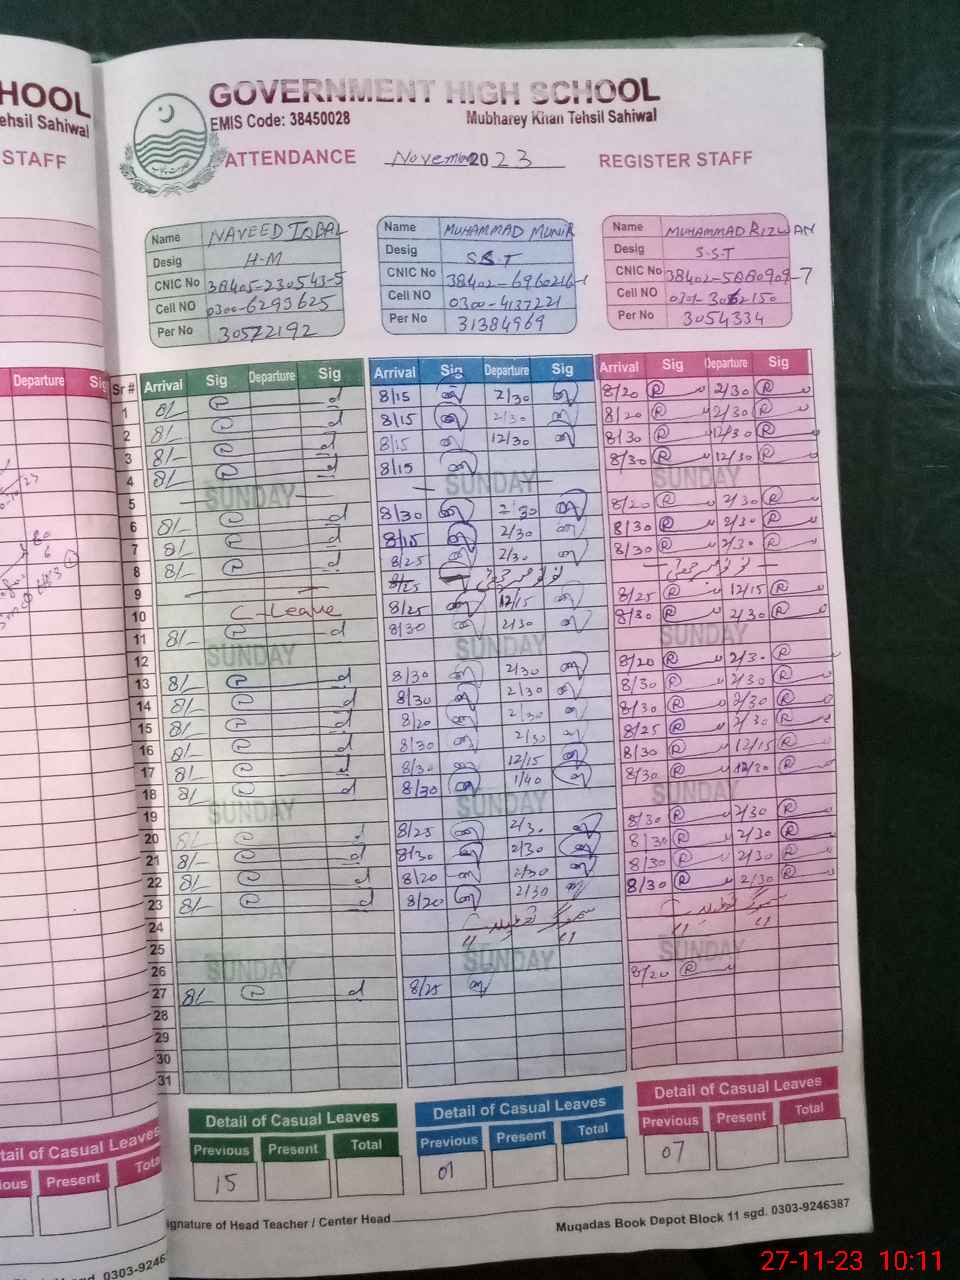 HOOL
ehsil Sahiwal
STAFF
GOVERNMENT HIGH SCHOOL
EMIS Code: 38450028
Mubharey Khan Tehsil Sahiwal
ATTENDANCE November 2023 REGISTER STAFF
Name NAVEED IQBAL
Desig H-M
CNIC No 38405-230543-5
Cell NO 0300-6293625
Per No 30572192
Name MUHAMMAD MUNIR
Desig S.S.T
CNIC No 38402-6960216-1
Cell NO 0300-4137221
Per No 31384969
Name MUHAMMAD RIZWAN
Desig S.S.T
CNIC No 38402-5880909-7
Cell NO
Per No 3054334
Departure Sig
Sr # Arrival Sig Departure Sig Arrival Sig Departure Sig Arrival Sig Departure Sig
1 8/- 8/15 2/30 8/20 2/30
2 8/- 8/15 2/30 8/20 2/30
3 8/- 8/15 12/30 8/30 12/30
4 8/- 8/15 8/30 12/30
5 SUNDAY SUNDAY SUNDAY
6 8/- 8/30 2/30 8/20 2/30
7 8/- 8/15 2/30 8/30 2/30
8 8/- 8/25 2/30 8/30 2/30
9 8/25
10 C-Leave 8/25 12/15 8/25 12/15
11 8/- 8/30 2/30 8/30 2/30
12 SUNDAY SUNDAY SUNDAY
13 8/- 8/30 2/30 8/20 2/30
14 8/- 8/30 2/30 8/30 2/30
15 8/- 8/20 2/30 8/30 2/30
16 8/- 8/30 2/30 8/25 2/30
17 8/- 8/30 12/15 8/30 12/15
18 8/- 8/30 1/40 8/30 12/30
19 SUNDAY SUNDAY SUNDAY
20 8/- 8/25 2/30 8/30 2/30
21 8/- 8/30 2/30 8/30 2/30
22 8/- 8/20 2/30 8/30 2/30
23 8/- 8/20 2/30 8/30 2/30
24
25
26 SUNDAY SUNDAY SUNDAY
27 8/- 8/25 8/20
28
29
30
31
tail of Casual Leaves
ious Present Total
Detail of Casual Leaves
Previous Present Total
15
Detail of Casual Leaves
Previous Present Total
01
Detail of Casual Leaves
Previous Present Total
07
ignature of Head Teacher / Center Head
Muqadas Book Depot Block 11 sgd. 0303-9246387
sgd. 0303-9246
27-11-23 10:11